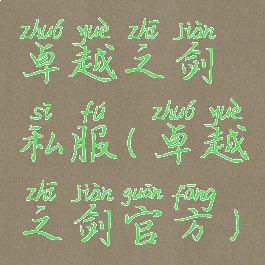 zhuó yuè zhī jiàn
卓越之剑
sī fú zhuó yuè
私服(卓越
zhī jiàn guān fāng
之剑官方)